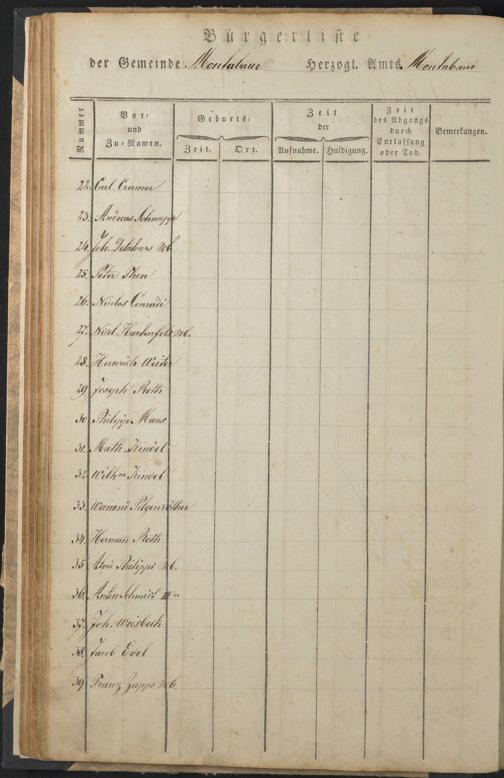 Bürgerliste
der Gemeinde Montabaur Herzogl. Amts Montabaur
Nummer
Vor- und Zu-Namen.
Geburts-
Zeit. Ort.
Zeit der
Aufnahme. Huldigung.
Zeit des Abgangs durch Entlassung oder Tod.
Bemerkungen.
22. Carl Cramer
23. Andreas Schnupp
24. Joh.
25. Peter Thon
26. Nicolas Conradi
27.
28. Heinrich
29. Joseph Roth
30. Philipp Maus
31. Math. Kindel
32. Wilhm Kindel
33. Wenand Pilgenröther
34. Hermann Roth
35. Alois Philippi
36. Anton Schmidt III
37. Joh. Weisbach
38. Jacob Edel
39. Franz Zapps